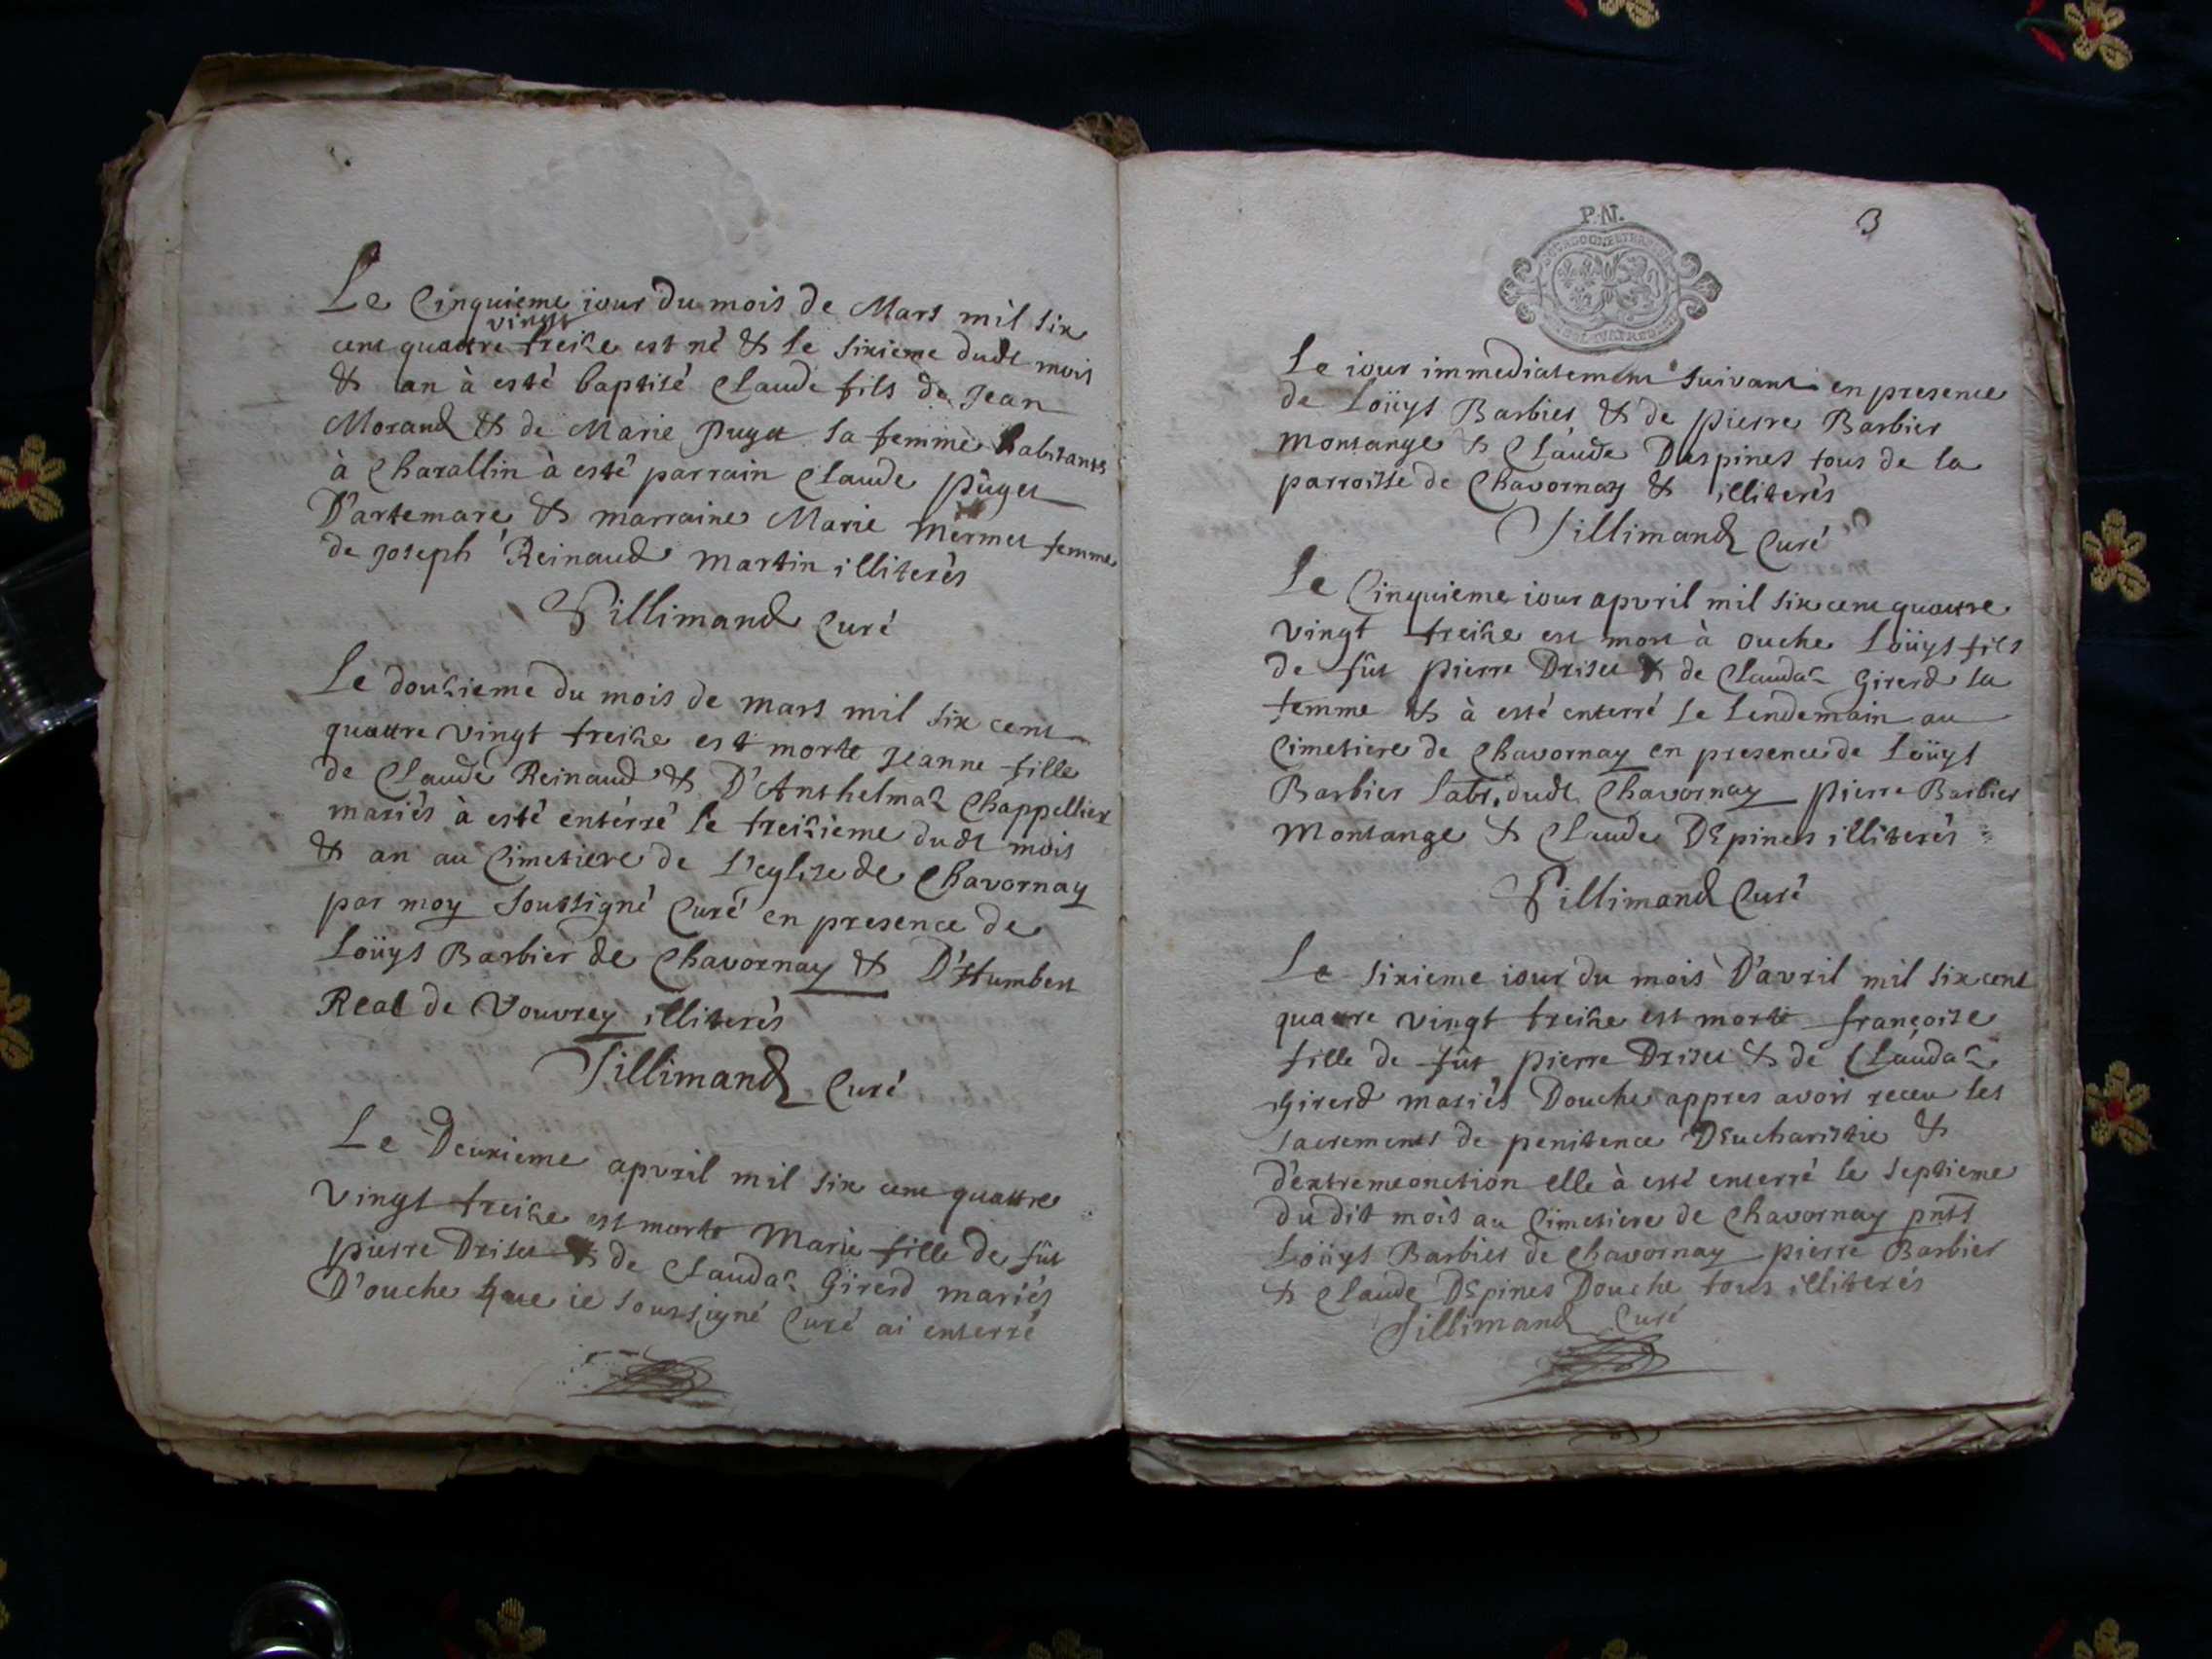 Le Cinquieme iour du mois de Mars mil six
vingt
cent quattre treize est né & le sixieme dudt mois
& an à esté baptisé Claude fils de Jean
Morand & de Marie Puget sa femme habitants
à Charallin à esté parrain Claude puget
D'artemare & marraine Marie Mermet femme
de Joseph Reinaud Martin illiterés
Tillimand Curé
Le douzieme du mois de mars mil six cent
quattre vingt treize est morte Jeanne fille
de Claude Reinaud & D'Anthelma Chappellier
mariés à esté enterré le treizieme dudt mois
& an au Cimetiere de L'eglise de Chavornay
par moy soussigné Curé en presence de
Loüys Barbier de Chavornay & D'Humbert
Real de Vouvrey illiterés
Tillimand Curé
Le Deuxieme apvril mil six cent quattre
vingt treize est morte Marie fille de fût
pierre Driset & de Clauda Girerd mariés
D'ouche que ie soussigné Curé ai enterré
P.N.
3
Le iour immediatement suivant en presence
de Loüys Barbier & de pierre Barbier
montange & Claude Despines tous de la
parroisse de Chavornay & illiterés
Tillimand Curé
Le Cinquieme iour apvril mil six cent quattre
vingt treize est mort à ouche Loüys fils
de fût pierre Driset & de Clauda Girerd sa
femme & à esté enterré le lendemain au
Cimetiere de Chavornay en presence de Loüys
Barbier labr. dudt Chavornay pierre Barbier
Montange & Claude Depines illiterés
Tillimand Curé
Le sixieme iour du mois D'avril mil six cent
quattre vingt treize est morte françoise
fille de fût pierre Driset & de Clauda
Girerd mariés Douche appres avoir receu les
sacrements de penitence Deucharistie &
d'extremeonction elle à esté enterré le septieme
dudit mois au Cimetiere de Chavornay pntt
Loüys Barbier de Chavornay pierre Barbier
& Claude Depines Douche tous illiterés
Tillimand Curé